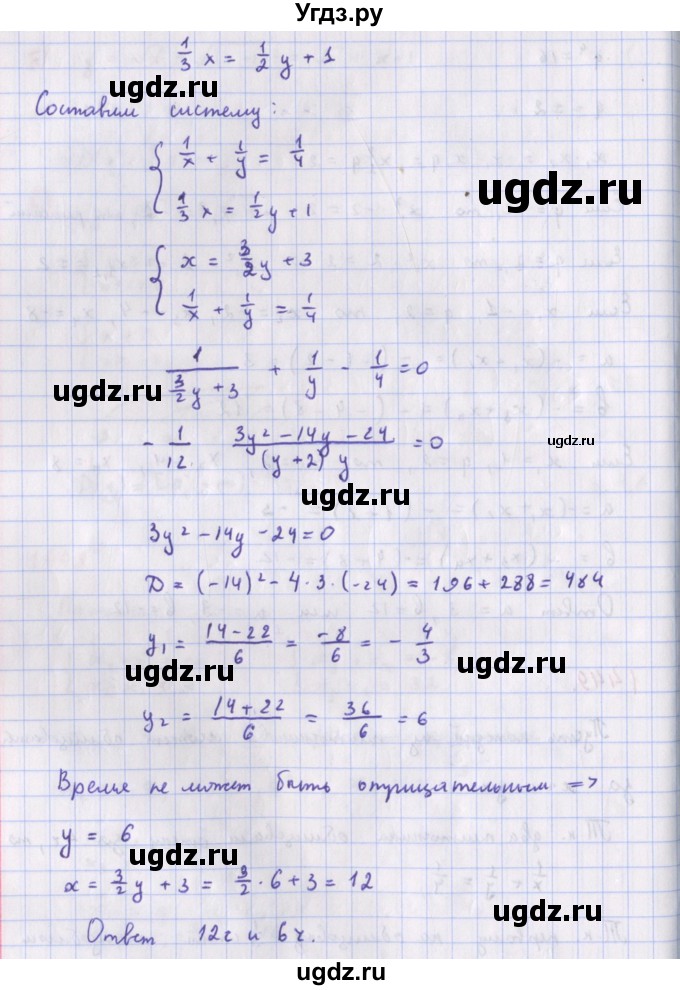 Угдз.ру
1/3 x = 1/2 y + 1
ugdz.ru
Составим систему:
{ 1/x + 1/y = 1/4
ugdz.ru
1/3 x = 1/2 y + 1
{ x = 3/2 y + 3
1/x + 1/y = 1/4
1/(3/2 y + 3) + 1/y - 1/4 = 0
ugdz.ru
- 1/12 (3y² - 14y - 24)/((y + 2) y) = 0
ugdz.ru
ugdz.ru
3y² - 14y - 24 = 0
D = (-14)² - 4·3·(-24) = 196 + 288 = 484
y₁ = (14 - 22)/6 = -8/6 = - 4/3
ugdz.ru
ugdz.ru
y₂ = (14 + 22)/6 = 36/6 = 6
Время не может быть отрицательным =>
y = 6
ugdz.ru
x = 3/2 y + 3 = 3/2 · 6 + 3 = 12
ugdz.ru
Ответ 12ч и 6ч.
ugdz.ru